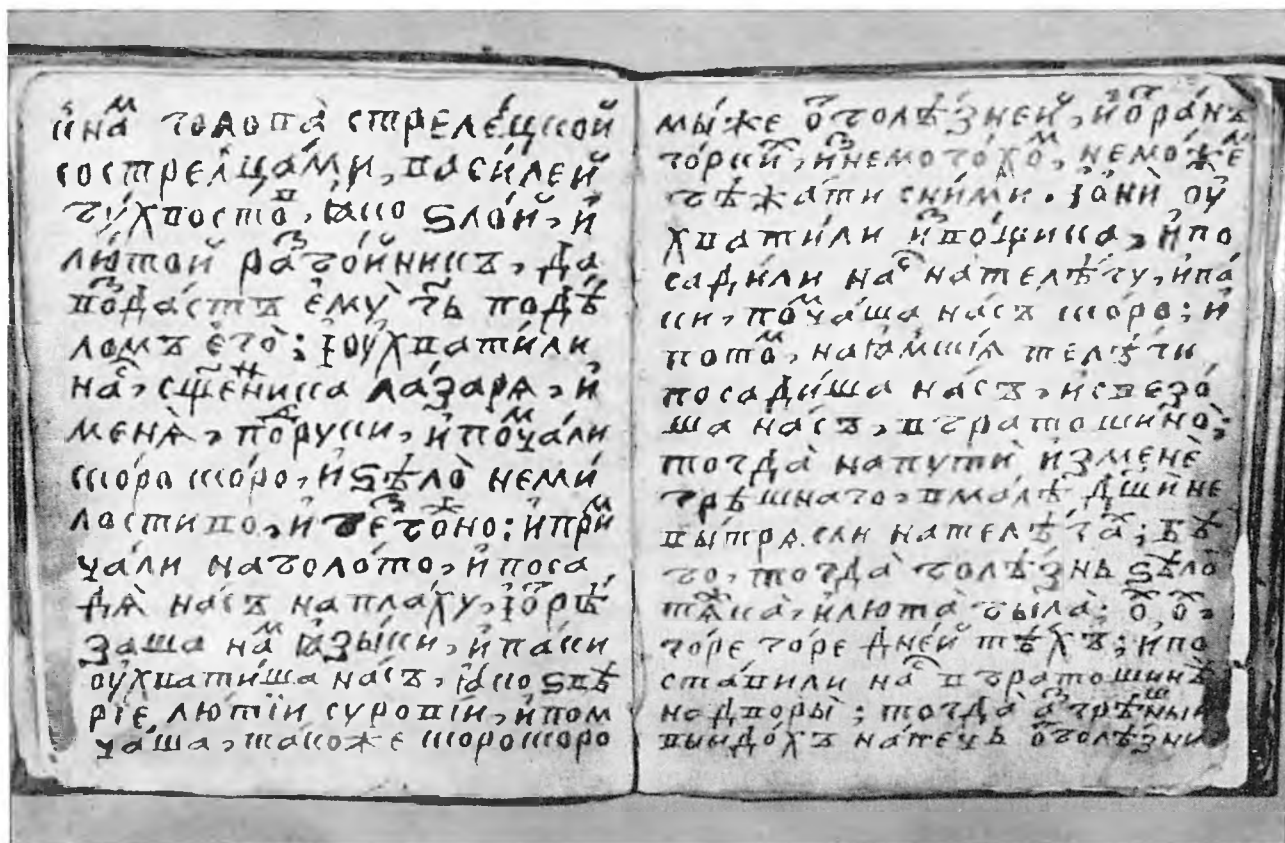 и҆ на́м голова̀ стреле́цкой
со стрелца́ми, васи́лей
бу́хвосто́в, ꙗ҆́ко ѕло́й, и҆
лю́той разбо́йникъ, да
возда́стъ ему̀ бг҃ъ по дѣ́
ломъ его̀: і оу҆хвати́ли
на́с, сщ҃е́нника ла́заря, и҆
меня̀, по́друки, и҆ помча́ли
ско́ро ско́ро, и҆ ѕѣло̀ неми́
лостиво, и҆ безбо́жно: и҆ при́м
чали на боло́то, и҆ поса
дя̀ на́съ на пла́ху, і ѻ҆трѣ́
заша на́м ꙗ҆зы́ки, и҆ па́ки
оу҆хвати́ша на́съ, ꙗ҆́ко ѕвѣ́
ріе лю́тїи суро́вїи, и҆ пом
ча́ша, та́коже скоро скоро
мы́ же ѻ҆т болѣ́зней, и҆ ѻ҆т ра́нъ
го́рких, и҆знемого́хом, не може́м
бѣжати с ни́ми. і ѻ҆нѝ оу҆
хвати́ли и҆зво́щика, и҆ по
сади́ли на́с на телѣ́гу, и҆ па́
ки, помча́ша на́съ скоро; и҆
пото́м, на ꙗ҆мскі́я телѣ́ги
посади́ша на́съ, и҆ свезо́
ша на́съ, в братошино̀;
тогда̀ на путѝ и҆з менѐ
грѣ́шнаго, в ма́лѣ дш҃и не
вы́трясли на телѣ́гах; бѣ̀
бо, тогда̀ болѣ́знь ѕѣло̀
тя́жка, и҆ люта̀ была̀; ѻ҆х ѻ҆х,
го́ре го́ре дне́й тѣ́хъ; и҆ по
ста́вили на́с в братошинѣ
на дворы̀; тогда̀ а҆з грѣ́шный
выидохъ на печь ѻ҆т болѣзни